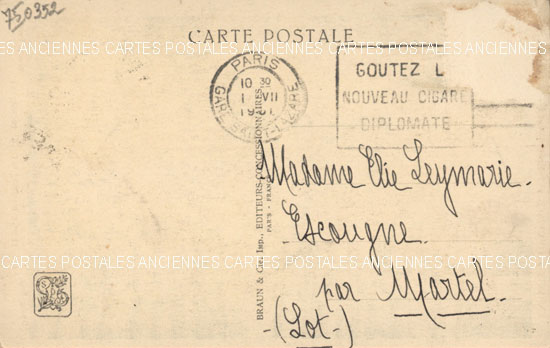 750352
CARTE POSTALE
CARTES POSTALES ANCIENNES CARTES POSTALES ANCIENNES CARTES
PARIS
10 30
VII
GARE ST-LAZARE
GOUTEZ L
NOUVEAU CIGARE
DIPLOMATE
BRAUN & Cie Imp., EDITEURS-CONCESSIONNAIRES
PARIS - FRANCE
Madame Elie Leymarie.
Escougne
CARTES POSTALES ANCIENNES CARTES POSTALES ANCIENNES CARTES
par Martel.
(Lot-)